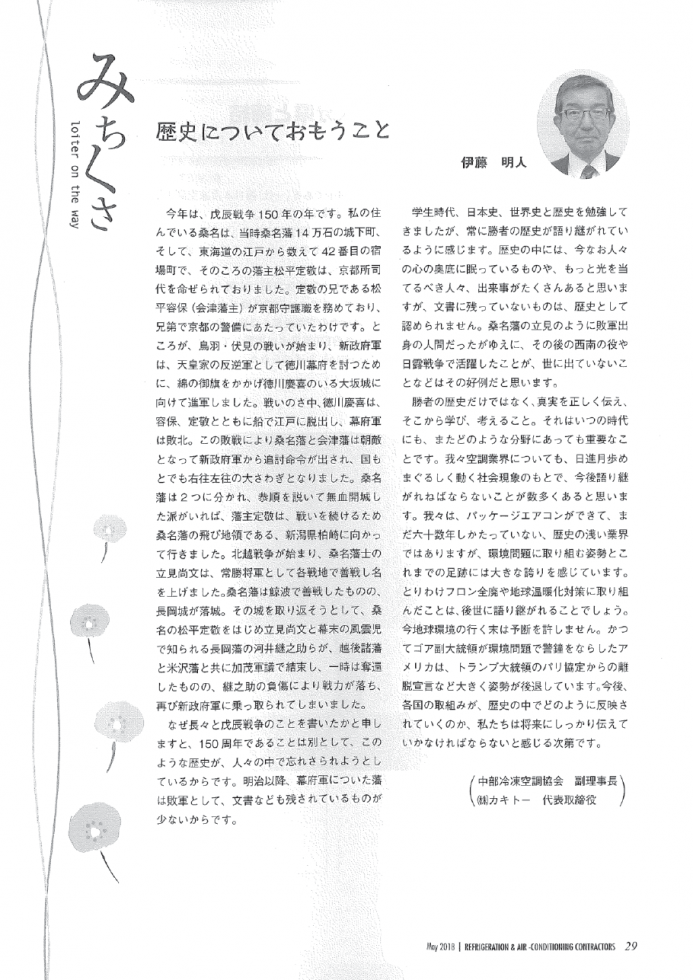 みちくさ
loiter on the way
歴史についておもうこと
伊藤 明人
今年は、戊辰戦争 150 年の年です。私の住
んでいる桑名は、当時桑名藩 14 万石の城下町、
そして、東海道の江戸から数えて 42 番目の宿
場町で、そのころの藩主松平定敬は、京都所司
代を命ぜられておりました。定敬の兄である松
平容保（会津藩主）が京都守護職を務めており、
兄弟で京都の警備にあたっていたわけです。と
ころが、鳥羽・伏見の戦いが始まり、新政府軍
は、天皇家の反逆軍として徳川幕府を討つため
に、錦の御旗をかかげ徳川慶喜のいる大坂城に
向けて進軍しました。戦いのさ中、徳川慶喜は、
容保、定敬とともに船で江戸に脱出し、幕府軍
は敗北。この敗戦により桑名藩と会津藩は朝敵
となって新政府軍から追討命令が出され、国も
とでも右往左往の大さわぎとなりました。桑名
藩は２つに分かれ、恭順を説いて無血開城し
た派がいれば、藩主定敬は、戦いを続けるため
桑名藩の飛び地領である、新潟県柏崎に向かっ
て行きました。北越戦争が始まり、桑名藩士の
立見尚文は、常勝将軍として各戦地で善戦し名
を上げました。桑名藩は鯨波で善戦したものの、
長岡城が落城。その城を取り返そうとして、桑
名の松平定敬をはじめ立見尚文と幕末の風雲児
で知られる長岡藩の河井継之助らが、越後諸藩
と米沢藩と共に加茂軍議で結束し、一時は奪還
したものの、継之助の負傷により戦力が落ち、
再び新政府軍に乗っ取られてしまいました。
なぜ長々と戊辰戦争のことを書いたかと申し
ますと、150 周年であることは別として、この
ような歴史が、人々の中で忘れさられようとし
ているからです。明治以降、幕府軍についた藩
は敗軍として、文書なども残されているものが
少ないからです。
学生時代、日本史、世界史と歴史を勉強して
きましたが、常に勝者の歴史が語り継がれてい
るように感じます。歴史の中には、今なお人々
の心の奥底に眠っているものや、もっと光を当
てるべき人々、出来事がたくさんあると思いま
すが、文書に残っていないものは、歴史として
認められません。桑名藩の立見のように敗軍出
身の人間だったがゆえに、その後の西南の役や
日露戦争で活躍したことが、世に出ていないこ
となどはその好例だと思います。
勝者の歴史だけではなく、真実を正しく伝え、
そこから学び、考えること。それはいつの時代
にも、またどのような分野にあっても重要なこ
とです。我々空調業界についても、日進月歩め
まぐるしく動く社会現象のもとで、今後語り継
がれねばならないことが数多くあると思いま
す。我々は、パッケージエアコンができて、ま
だ六十数年しかたっていない、歴史の浅い業界
ではありますが、環境問題に取り組む姿勢とこ
れまでの足跡には大きな誇りを感じています。
とりわけフロン全廃や地球温暖化対策に取り組
んだことは、後世に語り継がれることでしょう。
今地球環境の行く末は予断を許しません。かつ
てゴア副大統領が環境問題で警鐘をならしたア
メリカは、トランプ大統領のパリ協定からの離
脱宣言など大きく姿勢が後退しています。今後、
各国の取組みが、歴史の中でどのように反映さ
れていくのか、私たちは将来にしっかり伝えて
いかなければならないと感じる次第です。
（中部冷凍空調協会 副理事長
㈱カキトー 代表取締役）
May 2018 | REFRIGERATION & AIR-CONDITIONING CONTRACTORS 29